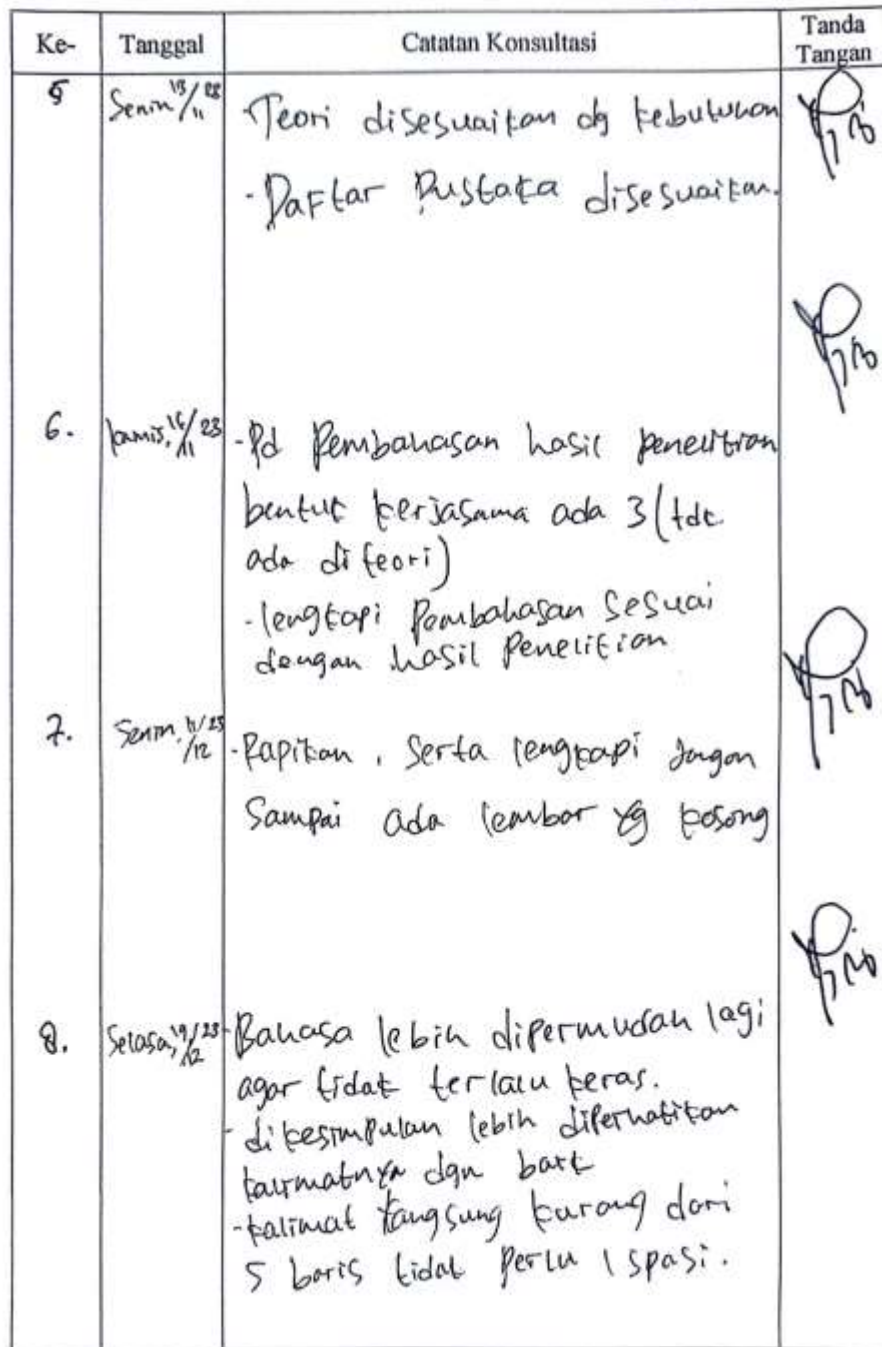 Ke- Tanggal Catatan Konsultasi Tanda Tangan
5 Senin 13/11 23 - Teori disesuaikan dg kebutuhan
- Daftar Pustaka disesuaikan.
6. Kamis, 16/11 23 - Pd Pembahasan hasil penelitian
bentuk kerjasama ada 3 (tdk
ada di teori)
- lengkapi Pembahasan Sesuai
dengan hasil Penelitian
7. Senin, /12 23 - Rapikan, Serta lengkapi jangan
Sampai ada lembar yg kosong
8. Selasa, 19/12 23 - Bahasa lebih dipermudah lagi
agar tidak terlalu keras.
- di kesimpulan lebih diperhatikan
kalimatnya dgn baik
- kalimat langsung kurang dari
5 baris tidak Perlu 1 spasi.